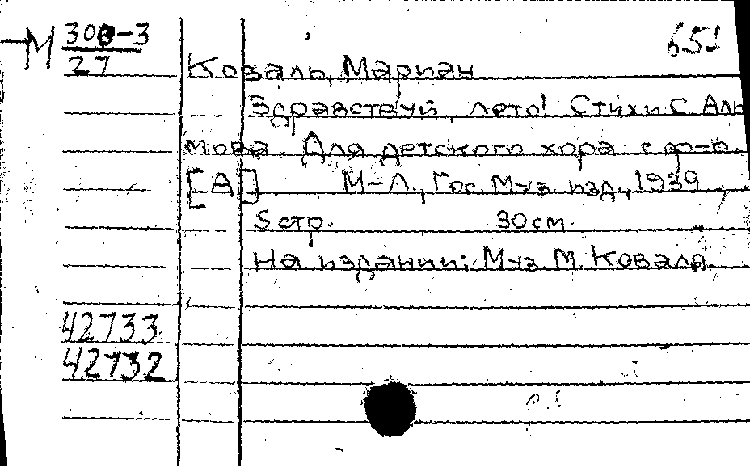 М 300-3
27
651
Коваль, Мариан
Здравствуй, лето! Стихи С Алы
мова. Для детского хора с ф-п.
[А] М-Л., Гос. Муз. изд., 1939
5 стр. 30 см.
На издании: Муз. М. Коваля.
42733
42732